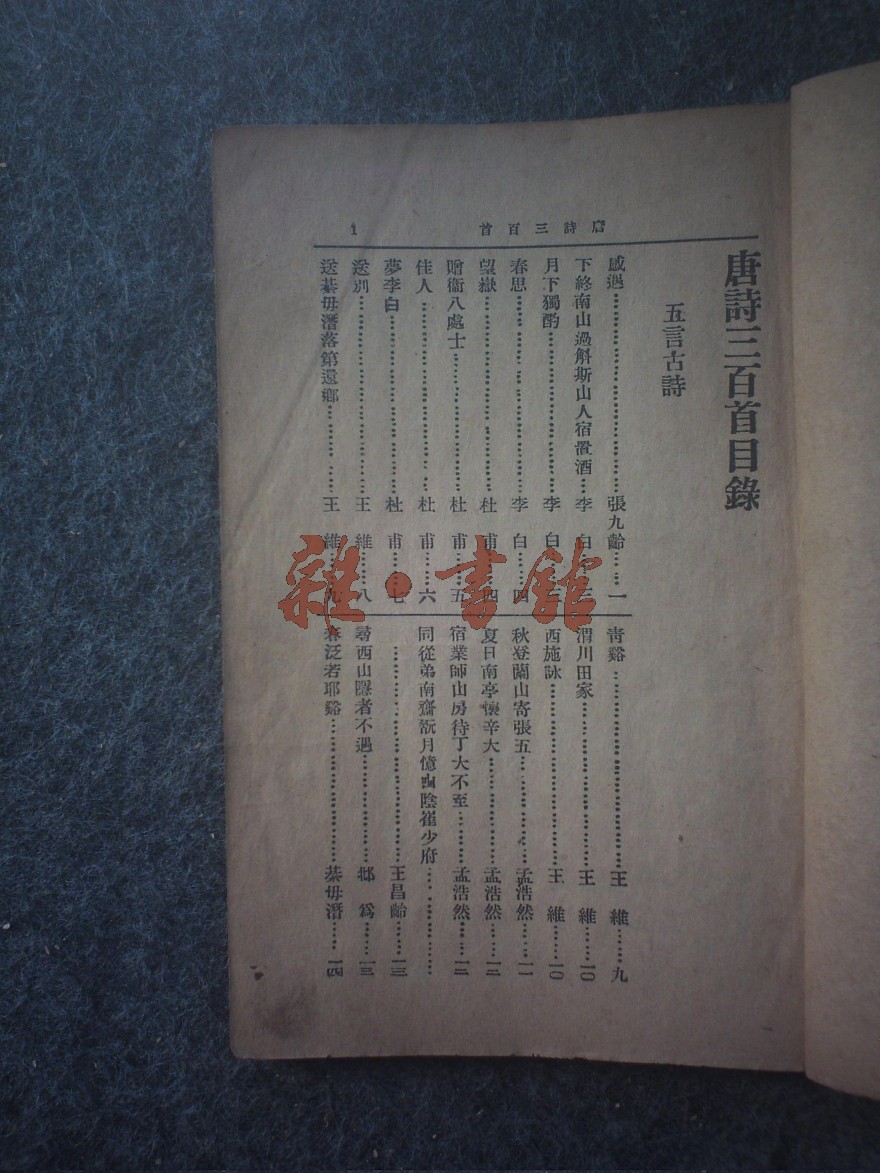 唐詩三百首 1
唐詩三百首目錄
五言古詩
感遇……張九齡……一
下終南山過斛斯山人宿置酒…李白…三
月下獨酌……李白……三
春思……李白……四
望嶽……杜甫……四
贈衞八處士……杜甫……五
佳人……杜甫……六
夢李白……杜甫……七
送別……王維……八
送綦毋潛落第還鄉……王維……九
靑谿……王維……九
渭川田家……王維……一〇
西施詠……王維……一〇
秋登蘭山寄張五……孟浩然……一一
夏日南亭懷辛大……孟浩然……一二
宿業師山房待丁大不至……孟浩然……一二
同從弟南齋翫月憶山陰崔少府……
……王昌齡……一三
尋西山隱者不遇……邱爲……一三
春泛若耶谿……綦毋潛……一四
雜·書館